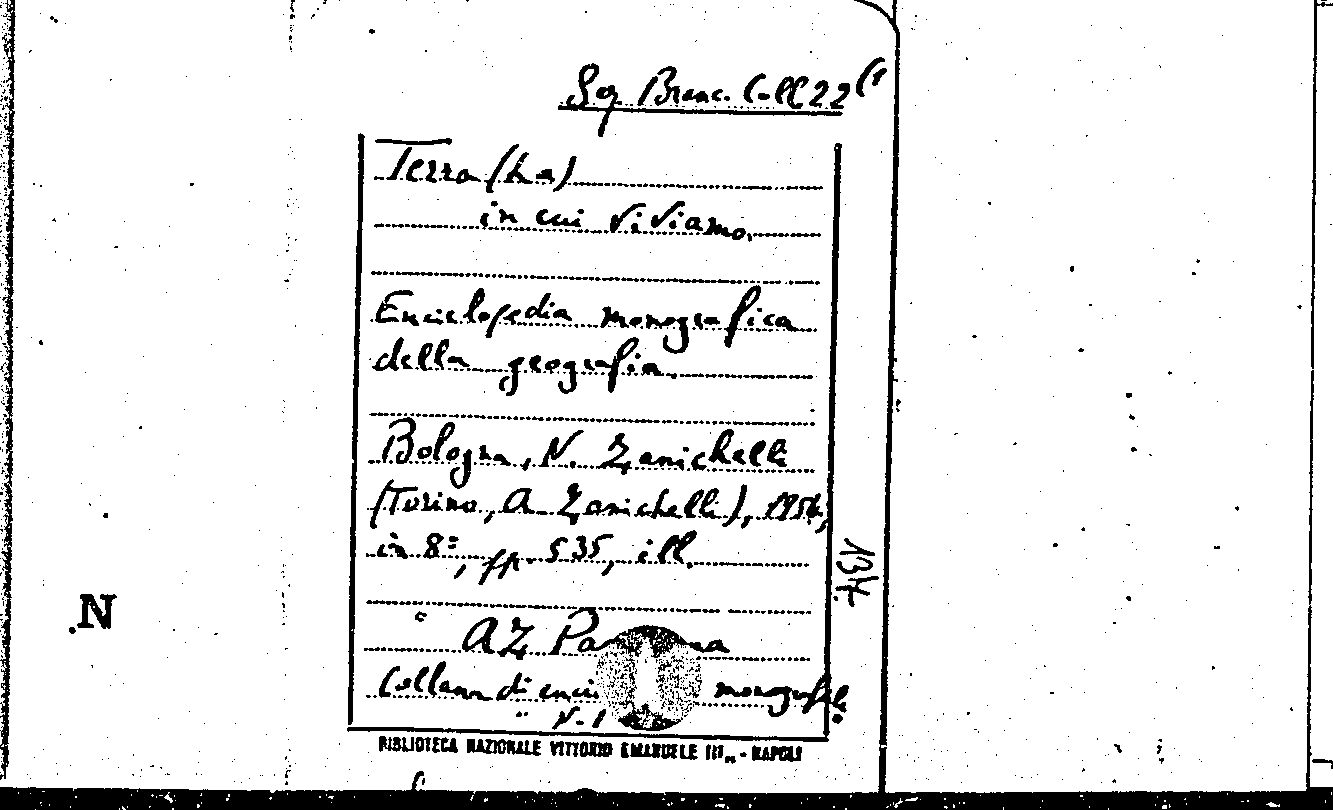 Sez Branc. Coll 22 (1
Terra (La)
in cui viviamo.
Enciclopedia monografica
della geografia.
Bologna, N. Zanichelli
(Torino, A. Zanichelli), 1954,
in 8º, pp. 535, ill.
AZ Panorama
Collana di enci monografiche
N. 1
BIBLIOTECA NAZIONALE VITTORIO EMANUELE III„ - NAPOLI
134.
.N